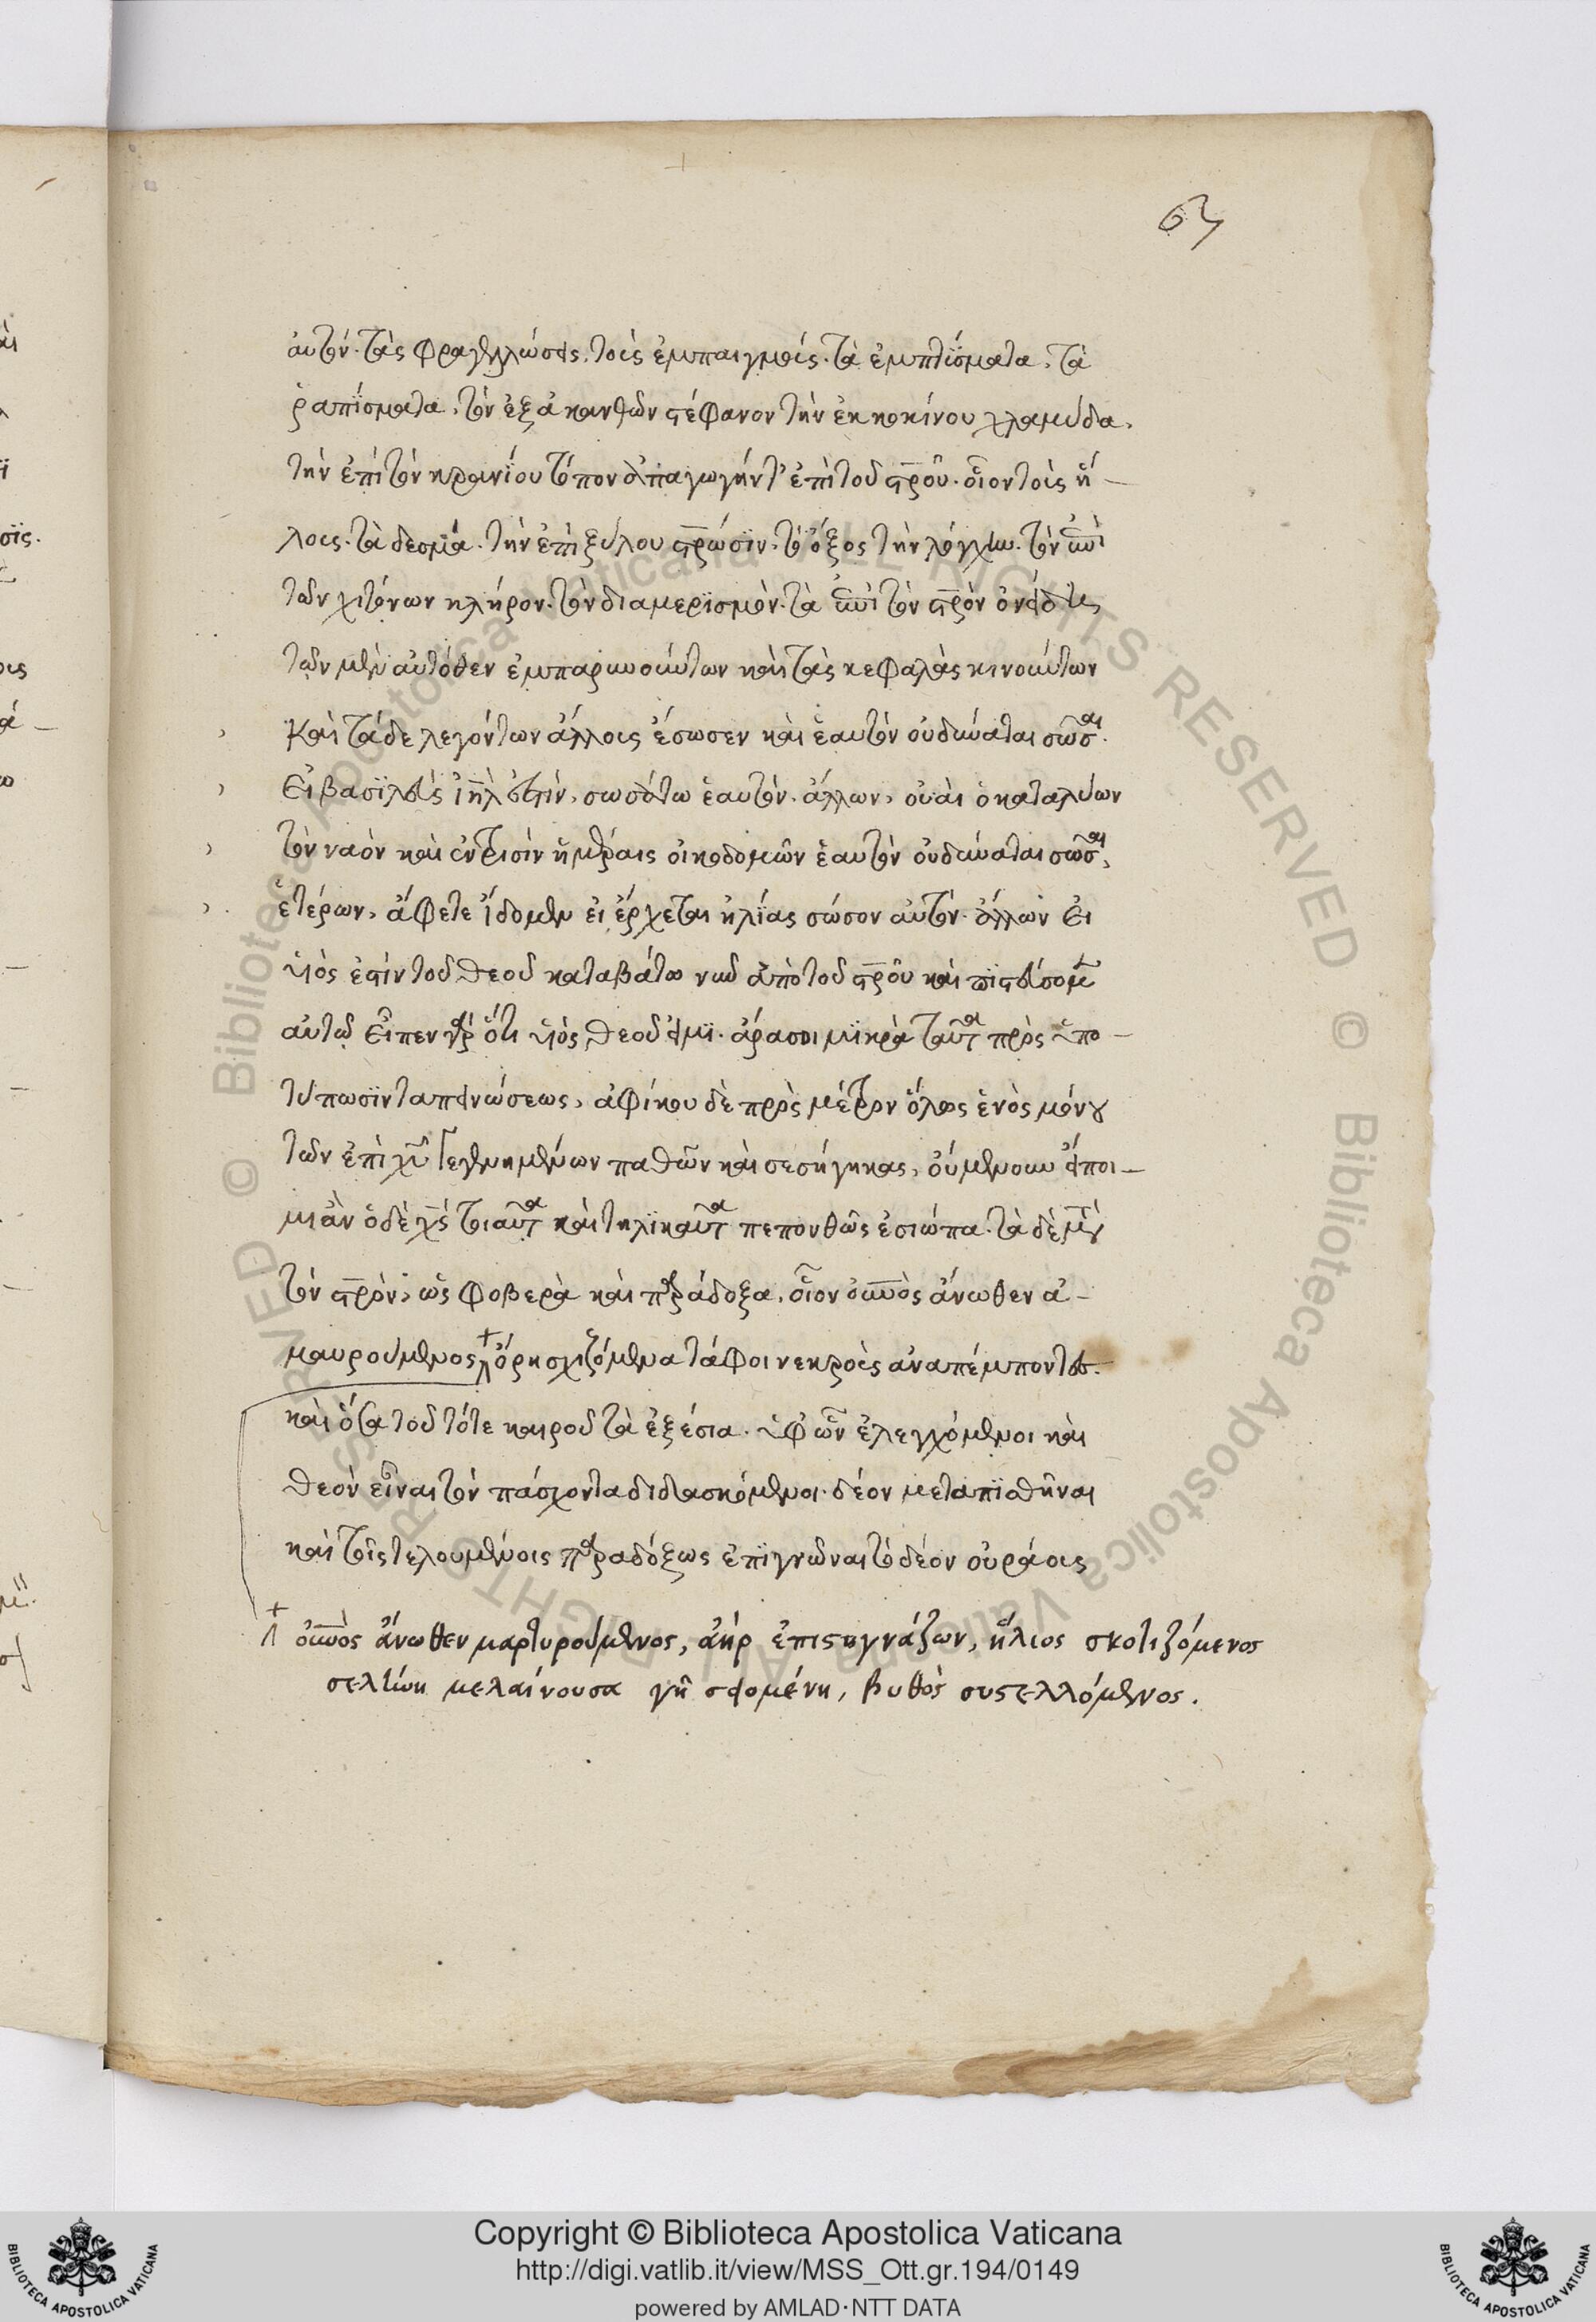 63
αὐτόν. τὰς φραγγελλώσεις. τοὺς ἐμπαιγμούς. τὰ ἐμπτΐσματα. τὰ
ῥαπΐσματα. τὸν ἐξ ἀκανθῶν στέφανον τὴν ἐκ κοκίνου χλαμύδα.
τὴν ἐπὶ τὸν κρανΐου τόπον ἀπαγωγήν τ' ἐπὶ τοῦ σ̅ρ̅οῦ. οἷον τοὺς ἥ-
λους. τὰ δεσμΐα. τὴν ἐπὶ ξύλου σ̅ρ̅ώσιν. τὸ ὄξος τὴν λόγχην. τὸν ἐπὶ
τῶν χιτόνων κλήρον. τὸν διαμερϊσμὸν. τὰ ἐπὶ τὸν σ̅ρ̅ὸν ὀνείδη
τῶν μὲν αὐτόθεν ἐμπαρκουούντων καὶ τὰς κεφαλὰς κινούντων
Καὶ τάδε λεγόντων ἄλλους ἔσωσεν καὶ ἑαυτὸν οὐ δύναται σῶσαι.
Εἰ βασϊλεὺς ἰ̅η̅λ̅ ἐστιν, σωσάτω ἑαυτὸν. ἄλλων, οὐὰι ὁ καταλύων
τὸν ναὸν καὶ ἐν τρισὶν ἡμέραις οἰκοδομῶν ἑαυτὸν οὐ δύναται σῶσαι,
ἑτέρων, ἄφετε ἴδομεν εἰ ἔρχεται ἠλΐας σώσον αὐτόν. ἄλλων Εἰ
υἱὸς ἐστὶν τοῦ θεοῦ καταβάτω νῦν ἀπὸ τοῦ σ̅ρ̅οῦ καὶ πϊστεύσομεν
αὐτῷ εἶπεν γὰρ ὅτι υἱὸς θεοῦ εἰμϊ. ἄρα σοι μϊκρὰ ταῦτα πρὸς ὑπο-
τύπωσϊν ταπεινώσεως, ἀφίκου δὲ πρὸς μέτρον ὅλως ἑνὸς μόνου
τῶν ἐπὶ χ̅υ̅ γεγενημένων παθῶν καὶ σεσήγηκας, οὐμενοῦν εἴποι-
μι ἂν ὁ δὲ χ̅ς̅ τοιαῦτα καὶ τηλϊκαῦτα πεπονθῶς ἐσιώπα. τὰ δὲ μετὰ
τὸν σ̅ρ̅ὸν, ὡς φοβερὰ καὶ παράδοξα, οἷον ο̅υ̅ν̅ὸς ἄνωθεν ἀ-
μαυρούμενος ὄρη σχιζόμενα τάφοι νεκροὺς ἀναπέμποντες.
καὶ ὅσα τοῦ τότε καιροῦ τὰ ἐξέσια. ὑφ' ὧν ἐλεγχόμενοι καὶ
θεὸν εἶναι τὸν πάσχοντα διδασκόμενοι. δέον μεταπϊσθῆναι
καὶ τοῖς τελουμένοις παραδόξως ἐπϊγνῶναι τὸ δέον οὐράους
ο̅υ̅ν̅ὸς ἄνωθεν μαρτυρούμενος, ἀὴρ ἐπιστυγνάζων, ἥλιος σκοτιζόμενος
σελήνη μελαίνουσα γῆ σειομένη, βυθὸς συστελλόμενος.
Copyright © Biblioteca Apostolica Vaticana
http://digi.vatlib.it/view/MSS_Ott.gr.194/0149
powered by AMLAD·NTT DATA